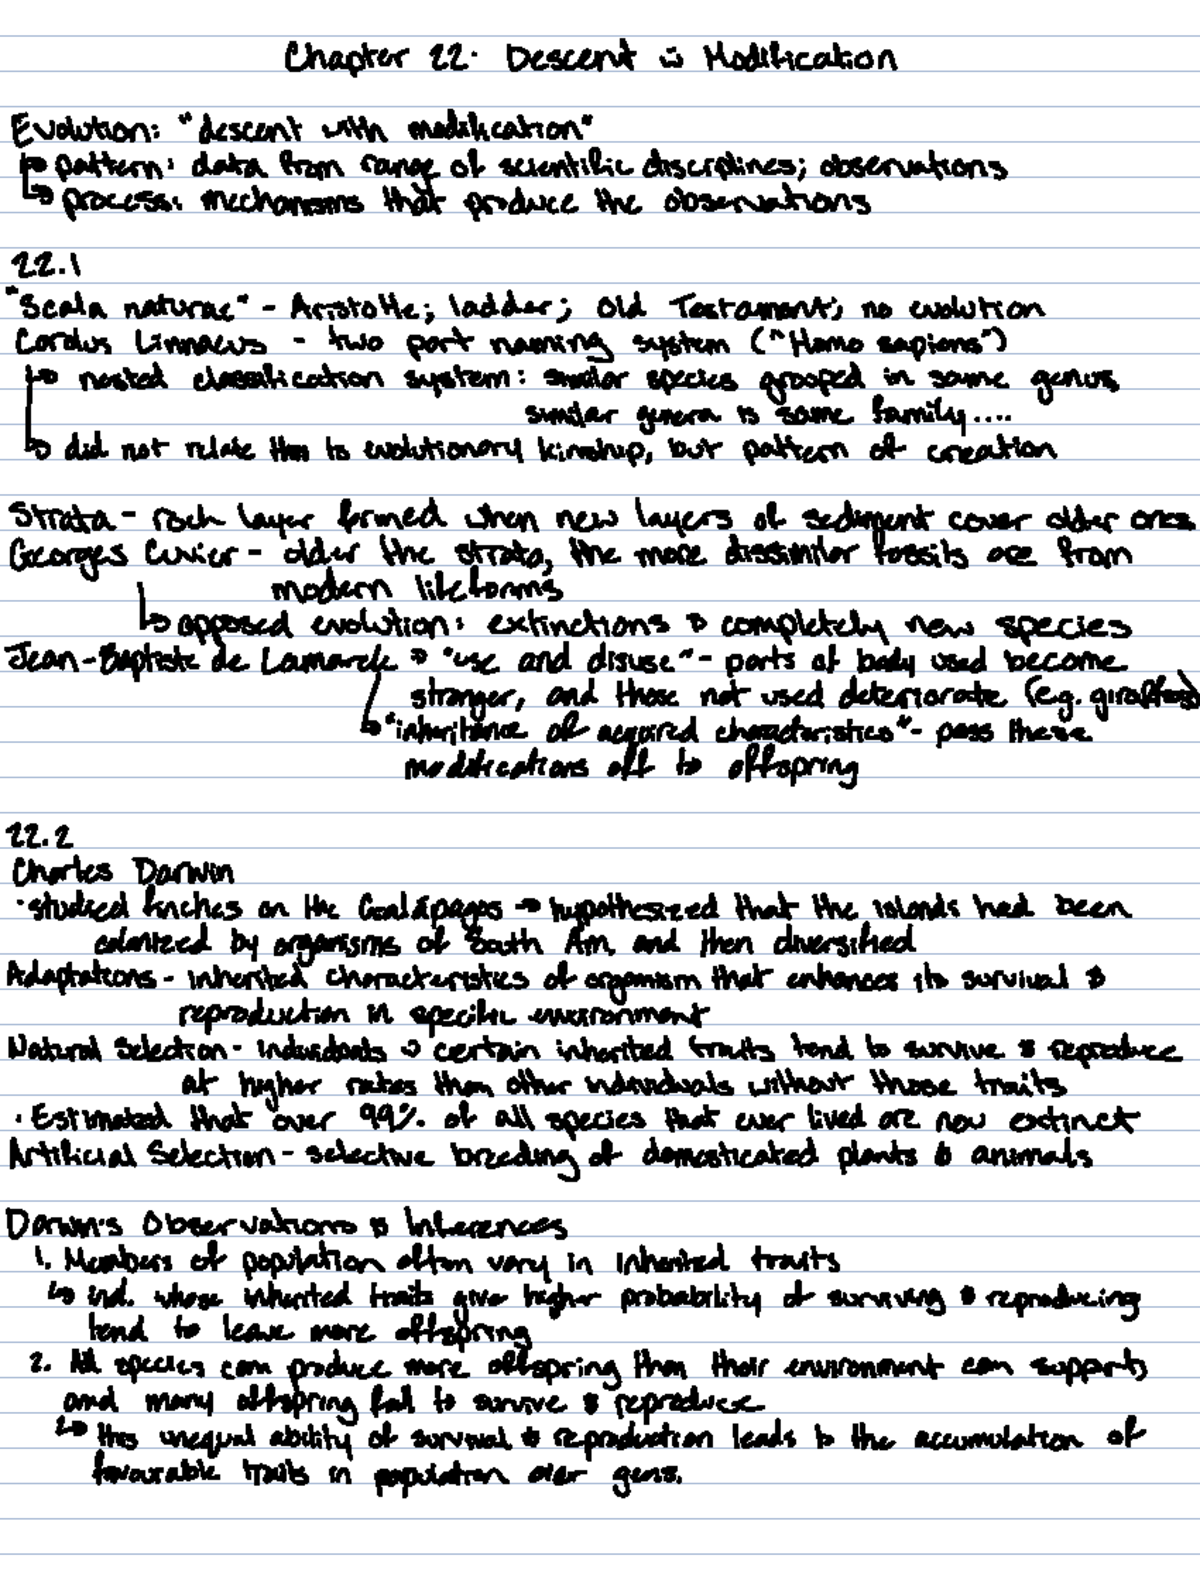 Chapter 22: Descent w Modification
Evolution: "descent with modification"
↳ pattern: data from range of scientific disciplines; observations
↳ process: mechanisms that produce the observations
22.1
"Scala naturae" - Aristotle; ladder; Old Testament; no evolution
Carolus Linnaeus - two part naming system ("Homo sapiens")
↳ nested classification system: similar species grouped in same genus,
similar genera is same family....
↳ did not relate this to evolutionary kinship, but pattern of creation
Strata - rock layer formed when new layers of sediment cover older ones
Georges Cuvier - older the strata, the more dissimilar fossils are from
modern lifeforms
↳ opposed evolution: extinctions & completely new species
Jean-Baptiste de Lamarck → "use and disuse" - parts of body used become
stronger, and those not used deteriorate (e.g. giraffes)
↳ "inheritance of acquired characteristics" - pass these
modifications off to offspring
22.2
Charles Darwin
· studied finches on the Galápagos → hypothesized that the islands had been
colonized by organisms of South Am. and then diversified
Adaptations - inherited characteristics of organism that enhances its survival &
reproduction in specific environment
Natural Selection - individuals w certain inherited traits tend to survive & reproduce
at higher rates than other individuals without those traits
· Estimated that over 99% of all species that ever lived are now extinct
Artificial Selection - selective breeding of domesticated plants & animals
Darwin's Observations & Inferences
1. Members of population often vary in inherited traits
↳ ind. whose inherited traits give higher probability of surviving & reproducing
tend to leave more offspring
2. All species can produce more offspring than their environment can support,
and many offspring fail to survive & reproduce
↳ this unequal ability of survival & reproduction leads to the accumulation of
favourable traits in population over gens.